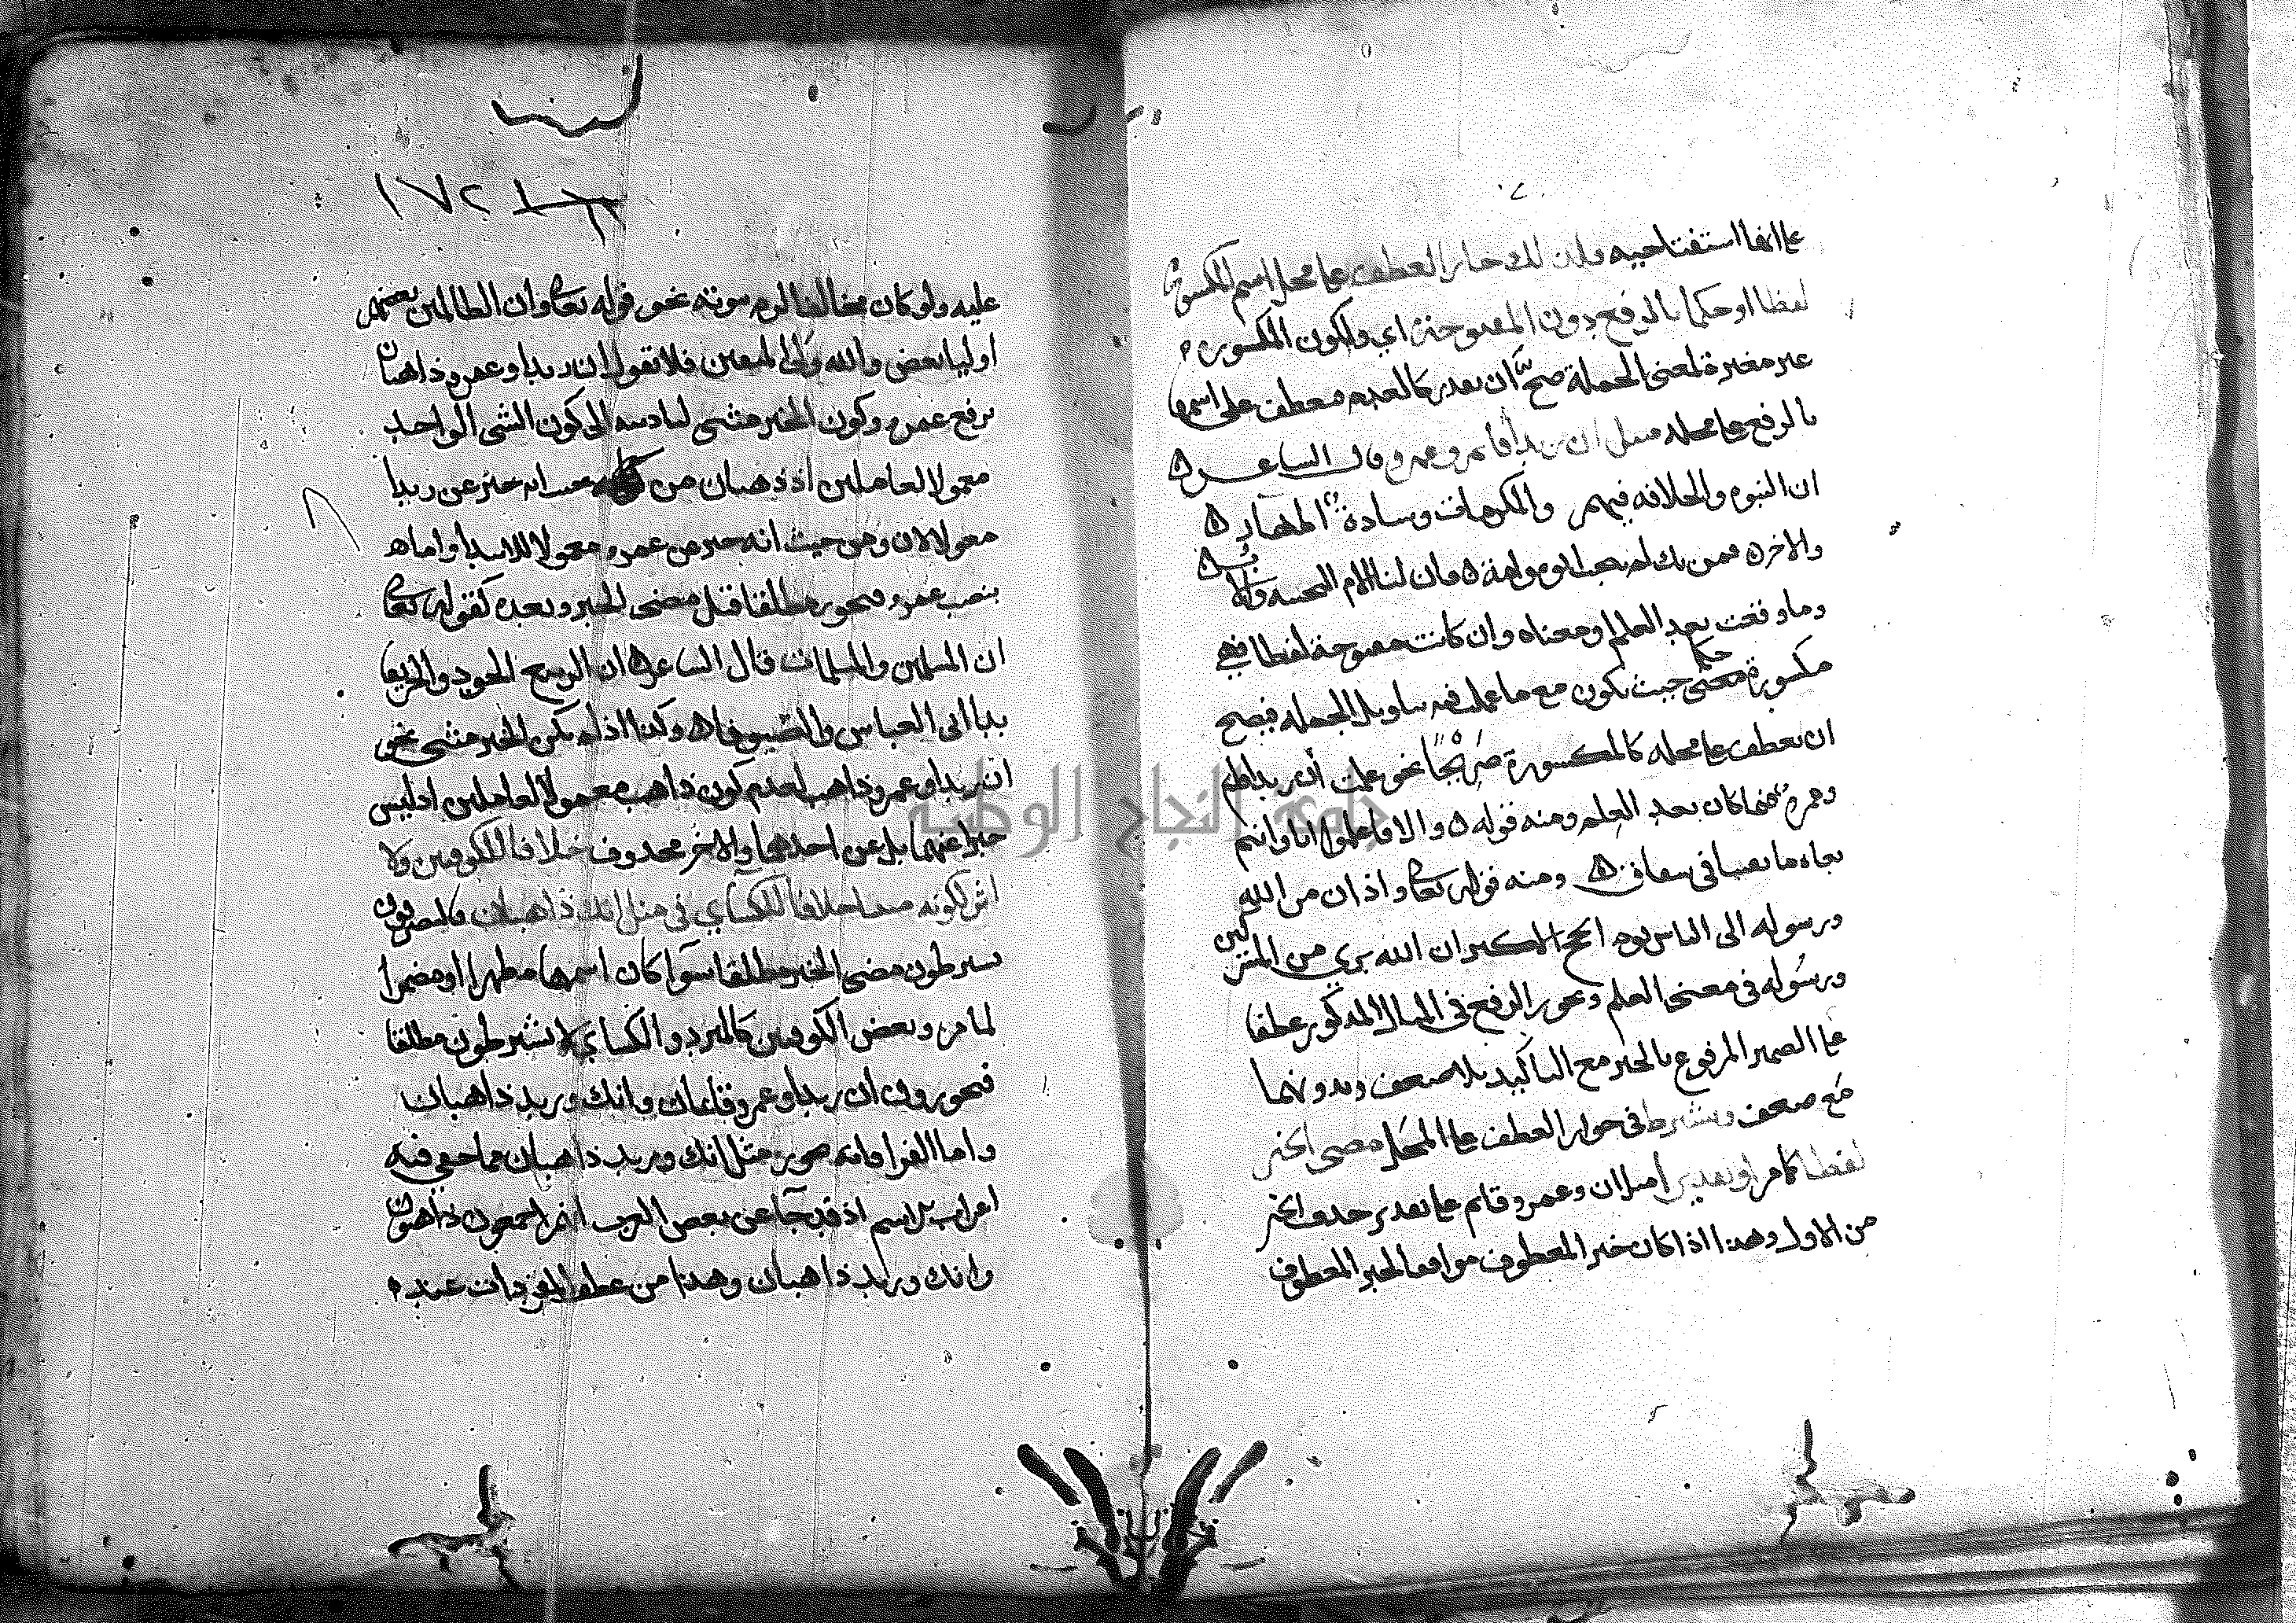 على انها استفتاحيه ولذلك جاز العطف على محل اسم المكسورة
لفظا او حكما بالرفع دون المفتوحة اي ولكون المكسوره
غير مغيرة لمعنى الجملة صح ان يقدر كالعدم فعطف على اسمها
بالرفع على محله مثل ان زيدا قائم وعمرو قال الشاعر
ان النبوه والخلافه فيهم والمكرمات وسادة اطهار
والاخر فمن يك لم ينجب ابوه وامه فان لنا الام النجيبة والاب
وما وقعت بعد العلم او معناه وان كانت مفتوحة لفظا فهي
مكسورة حكما حيث تكون مع ما عملت فيه بتاويل الجمله فيصح
ان يعطف على محله كالمكسورة صريحا نحو علمت ان زيدا قائم
وعمرو فيما كان بعد العلم ومنه قوله والا فاعلموا انا وانتم
بغاه ما بقينا في شقاق ومنه قوله تعالى واذان من الله
ورسوله الى الناس يوم الحج الاكبر ان الله بري من المشركين
ورسوله في معنى العلم وجوز الرفع في المثال المذكور عطفا
على الضمير المرفوع بالخبر مع التاكيد بلا ضعف وبدونهما
مع ضعف ويشترط في جواز العطف على المحل مضى الخبر
لفظا كما مر او تقديرا مثل ان وعمرو قائم على تقدير حذف الخبر
من الاول وهذا اذا كان خبر المعطوف موافقا لخبر المعطوف
١٧٢
عليه ولو كان مخالفا لزم نحو قوله تعالى وان الظالمين بعضهم
اوليا بعض والله ولى المتقين فلا تقول ان زيدا وعمرو ذاهبان
برفع عمرو وكون الخبر مثنى لتاديه الى كون الشى الواحد
معمولا لعاملين اذ ذهبان من حيث انه خبر عن زيدا
معمولا لان ومن حيث انه خبر عن عمرو معمولا للابتدا واما
بنصب عمرو فيجوز مطلقا قبل مضى الخبر وبعده كقوله تعالى
ان المسلمين والمسلمات قال الشاعر ان الربيع الجود والخريفا
يدا ابى العباس والصيوفا وكذا اذا لم يكن الخبر مثنى نحو
ان زيدا وعمرو ذاهب لعدم كون ذاهب معمولا لعاملين اذ ليس
خبرا عنهما بل عن احدهما والاخر محذوف خلافا للكوفيين ولا
اثر لكونه مبنيا خلافا للكسآي في مثل انك وزيد ذاهبان فالبصريون
يشترطون مضى الخبر مطلقا سوآ كان اسمها مظهرا او مضمرا
لما مر وبعض الكوفيين كالمبرد والكسآي لا يشترطون مطلقا
فيجوزون ان زيدا وعمرو قائمان وانك وزيد ذاهبان
واما الفرا فانه يجوز مثل انك وزيد ذاهبان مما خفي فيه
اعراب الاسم اذ قد جآ عن بعض العرب انهم اجمعون ذاهبون
وانك وزيد ذاهبان وهذا من عطف المفردات عنده
جامعة النجاح الوطنية